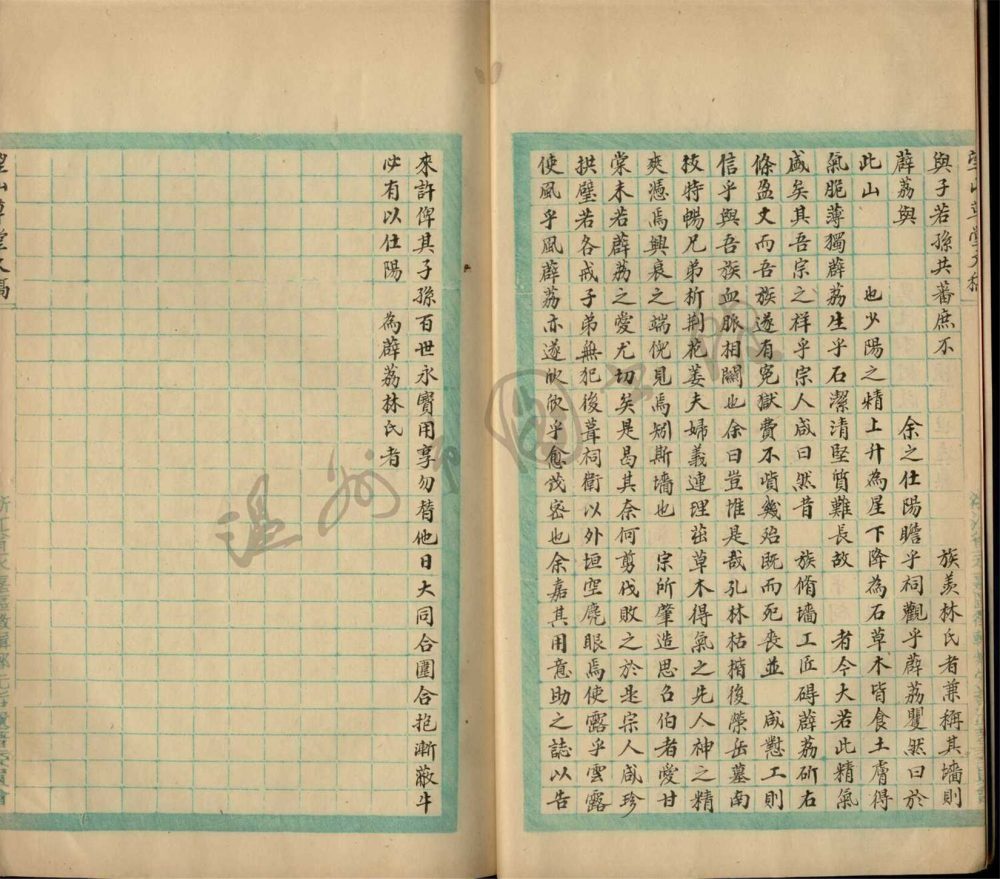 與子若孫共蕃庶不　族羨林氏者兼稱其墻則
薜荔與　余之仕陽瞻乎祠觀乎薜荔瞿然曰於
此山　也少陽之精上升為星下降為石草木皆食土膚得
氣脆薄獨薜荔生乎石潔清堅質難長故　者今大若此精氣
盛矣其吾宗之祥乎宗人咸曰然昔　族脩墻工匠碍薜荔斫右
條盈丈而吾族遂有寃獄費不貲幾殆既而死喪並　咸懟工則
信乎與吾族血脈相關也余曰豈惟是哉孔林枯楷後榮岳墓南
枝特暢兄弟析荆花萎夫婦義連理茁草木得氣之先人神之精
爽憑焉興衰之端倪見焉矧斯墻也　宗所肇造思召伯者愛甘
棠未若薜荔之愛尤切矣是曷其奈何剪伐敗之於是宗人咸珍
拱璧若各戒子弟無犯後葺祠衛以外垣空麂眼焉使露乎雲露
使風乎風薜荔亦遂欣欣乎愈茂密也余嘉其用意助之誌以告
來許俾其子孫百世永寶用享勿替他日大同合圍合抱漸蔽牛
必有以仕陽　為薜荔林氏者
望山草堂文稿
温州市圖書館